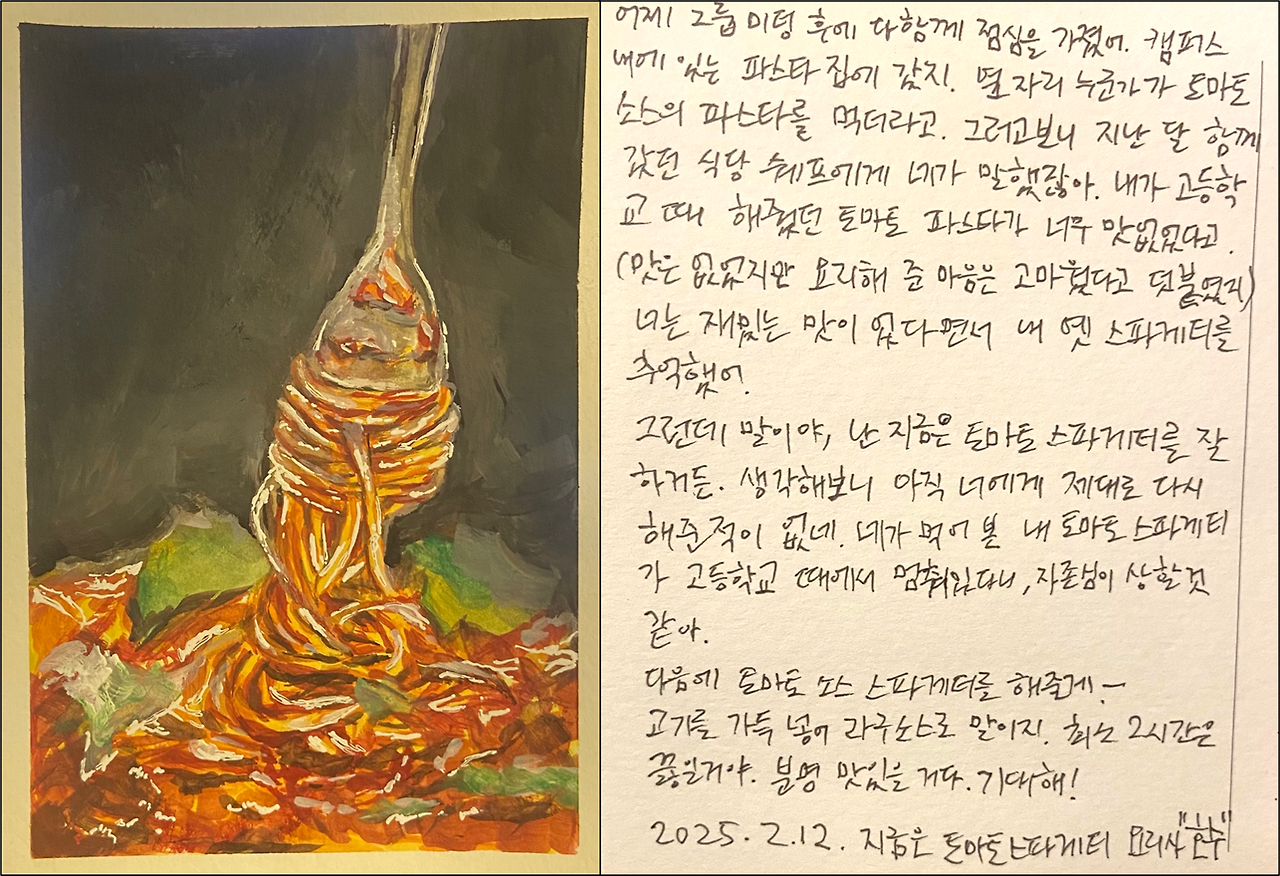 어제 그룹미팅 후에 다함께 점심을 가졌어. 캠퍼스
내에 있는 파스타 집에 갔지. 옆자리 누군가가 토마토
소스의 파스타를 먹더라고. 그러고보니 지난 달 함께
갔던 식당 쉐프에게 네가 말했잖아. 내가 고등학
교 때 해줬던 토마토 파스타가 너무 맛없었다고.
(맛은 없었지만 요리해 준 마음은 고마웠다고 덧붙였지)
너는 재밌는 맛이 었다면서 내 옛 스파게티를
추억했어.
그런데 말이야, 난 지금은 토마토 스파게티를 잘
하거든. 생각해보니 아직 너에게 제대로 다시
해준적이 없네. 네가 먹어 본 내 토마토 스파게티
가 고등학교 때에서 멈춰있다니, 자존심이 상할것
같아.
다음에 토마토 소스 스파게티를 해줄게~
고기를 가득 넣어 라구소스로 말이지. 최소 2시간은
끓일거야. 분명 맛있을 거다. 기대해!
2025.2.12. 지금은 토마토스파게티 요리사